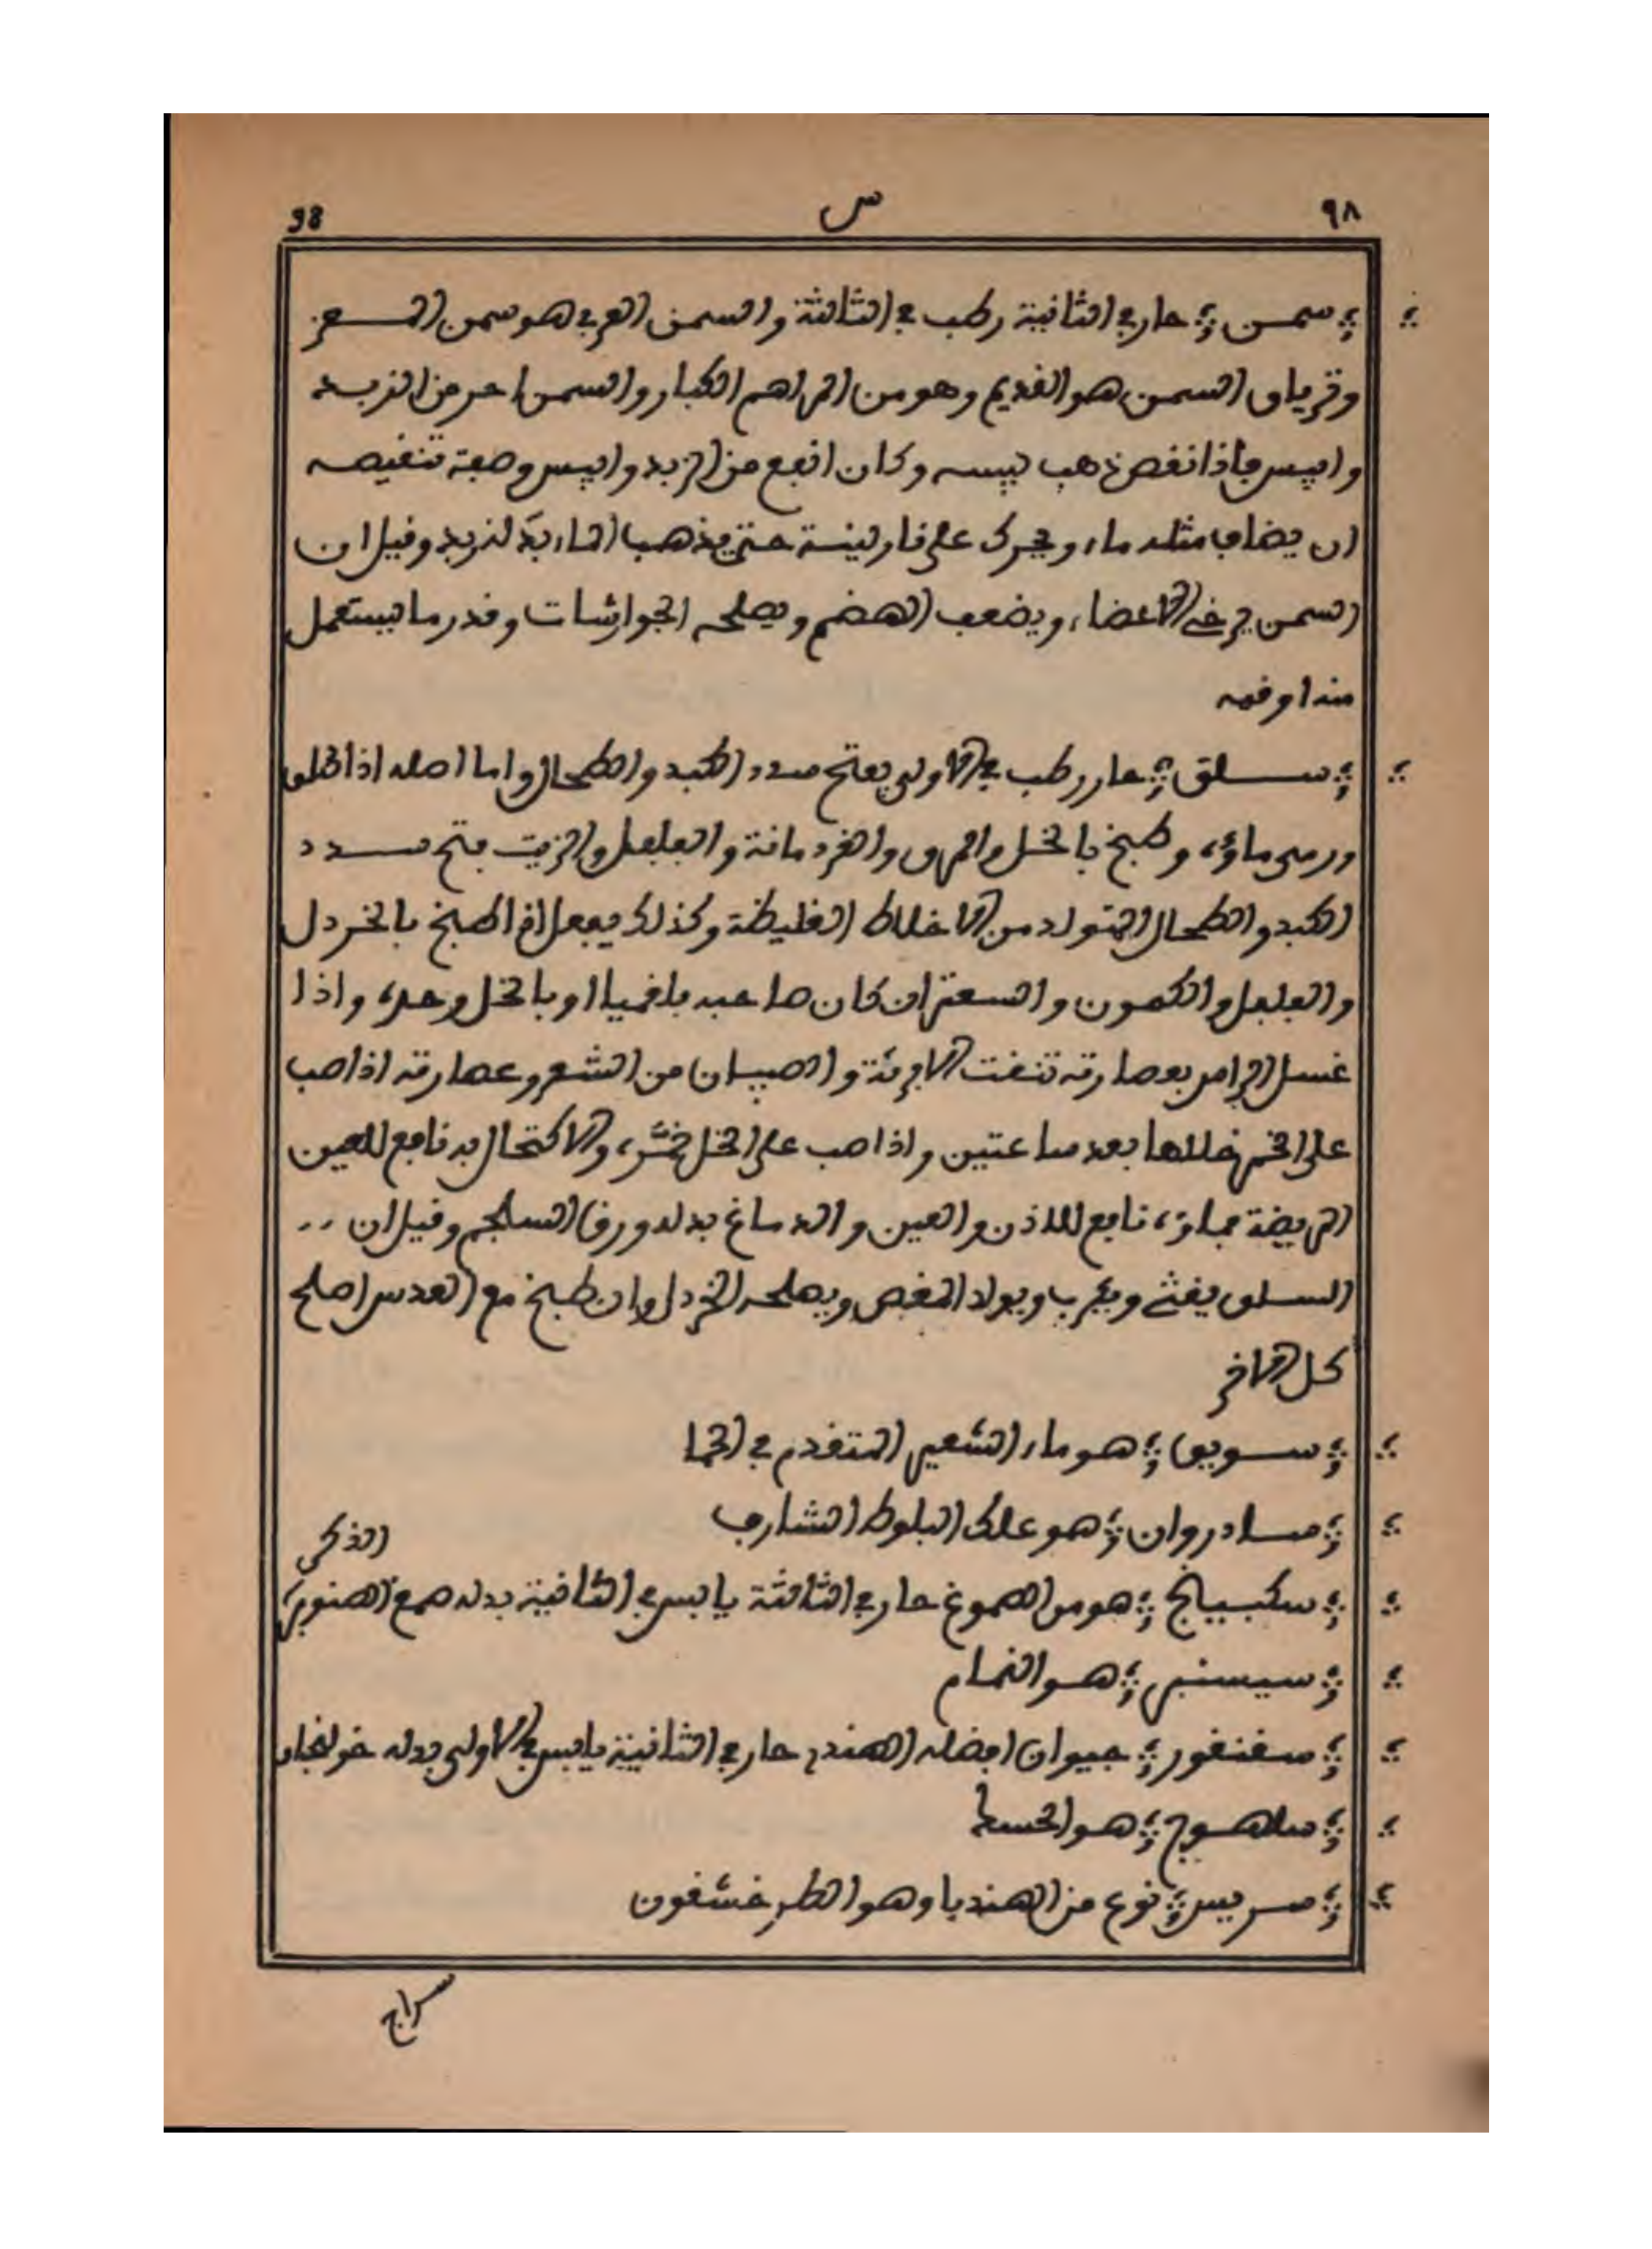 ٩٨ س 98
سمن حار في الثانية رطب في الثالثة والسمن العربي هو سمن المعز
وترياق السمن هو القديم وهو من المراهم الكبار والسمن احر من الزبد
وايبس فاذا نقص ذهب يبسه وكان انفع من الزبد وايبس وصفة تنقيصه
ان يضاف مثله ماء ويحرك على نار لينة حتى يذهب الماء بدله زبد وقيل ان
السمن يرخي الاعضاء ويضعف الهضم ويصلحه الجوارشات وقدر ما يستعمل
منه اوقية
سلق حار رطب في الاولى يفتح سدد الكبد والطحال واما اصله اذا سلق
ورمى ماؤه وطبخ بالخل والمرى والقردمانة والفلفل والزيت فتح سدد
الكبد والطحال المتولد من الاخلاط الغليظة وكذلك يفعل اذا طبخ بالخردل
والفلفل والكمون والسعتر ان كان صاحبه بلغميا او بالخل وحده واذا
غسل الراس بعصارته تنقت الابرئة والصيبان من الشعر وعصارته اذا صب
على الخمر خللها بعد ساعتين واذا صب على الخل خمره والاكتحال به نافع للعين
المريضة بماؤه نافع للاذن والعين والدماغ بدله ورق السلجم وقيل ان
السلق يغثي ويكرب ويولد المغص ويصلحه الخردل وان طبخ مع العدس اصلح
كل الاخر
سويق هو ماء الشعير المتقدم في الما
سادروان هو علك البلوط الشارف
الذكر
سكبينج هو من الصموغ حار في الثالثة يابس في الثانية بدله صمغ الصنوبر
سيسنبر هو النمام
سقنقور حيوان افضله الهندي حار في الثانية يابس في الاولى بدله خولنجان
ساهوج هو الحسك
سريس نوع من الهندبا وهو الطرخشقون
سراج